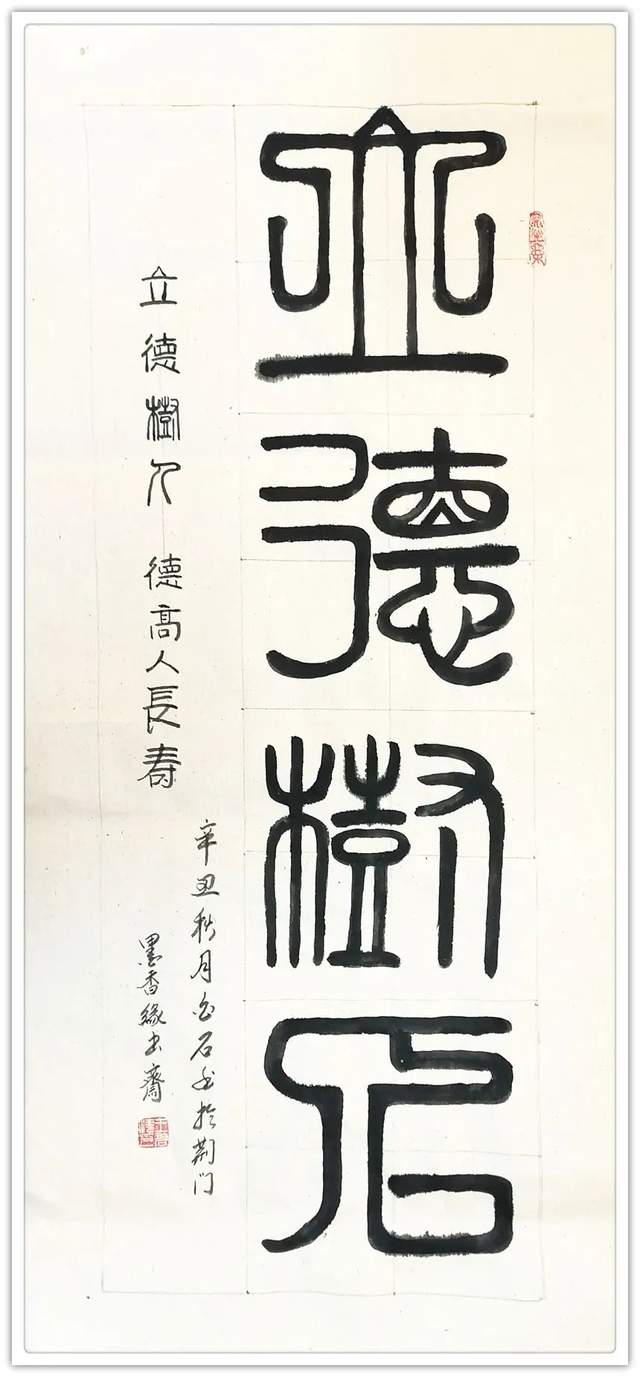 立德樹人
立德樹人 德高人長寿
辛丑秋月白石书於荆门
墨香緣书齋